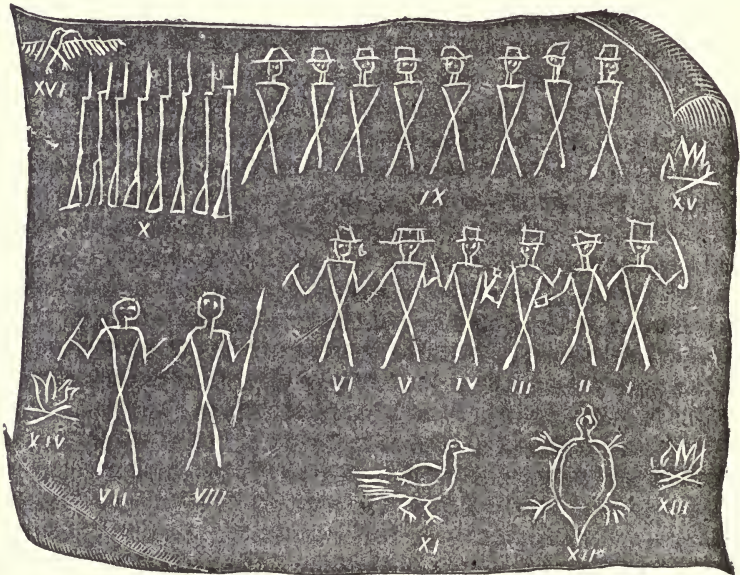 XVI
X
IX
XV
VI V IV III II I
XIV
VII VIII
XIII
XI